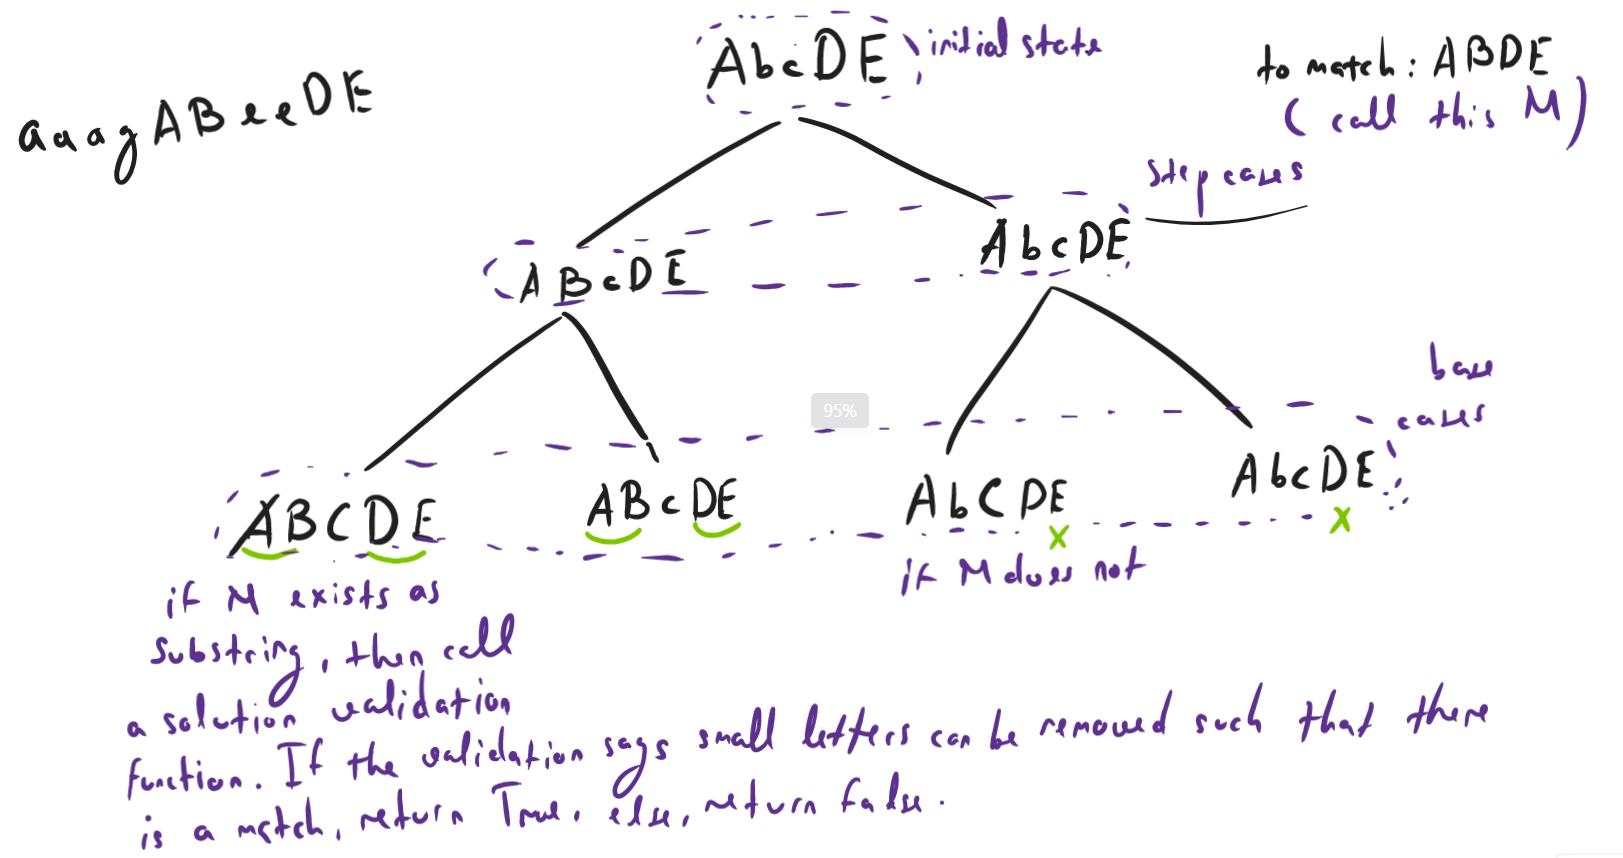 AbcDE initial state
to match: ABDE
(call this M)
aaagABeeDE
step cases
ABcDE
AbcDE
95%
base
cases
ABCDE
ABcDE
AbCDE
AbcDE
x
x
if M exists as
substring, then call
a solution validation
function. If the validation says small letters can be removed such that there
is a match, return True. else, return false.
if M does not